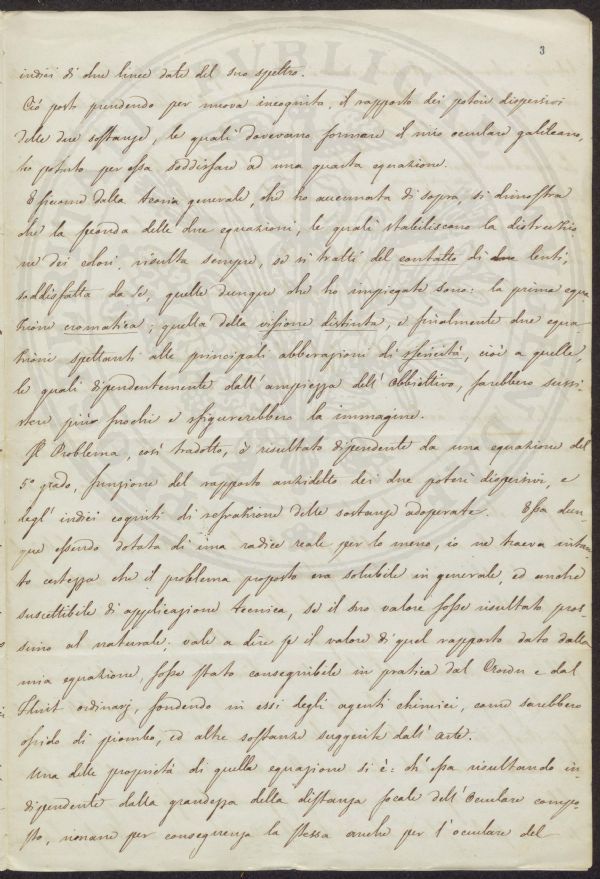 3
indici di due linee date del suo spettro.
Ciò posto prendendo per nuova incognita, il rapporto dei poteri dispersivi
delle due sostanze, le quali dovevano formare il mio oculare galileano,
ho potuto per essa soddisfare ad una quarta equazione.
E siccome dalla teoria generale, che ho accennata di sopra, si dimostra
che la seconda delle due equazioni, le quali stabiliscono la distruzio
ne dei colori, risulta sempre, se si tratti del contatto di due lenti,
soddisfatta da se, quelle dunque che ho impiegate sono: la prima equa
zione cromatica; quella della visione distinta, e finalmente due equa
zioni spettanti alle principali abberazioni di sfericità, cioè a quelle,
le quali dipendentemente dall'ampiezza dell'Obbiettivo, farebbero sussi-
stere più fuochi e sfigurerebbero la immagine.
Il Problema, così tradotto, è risultato dipendente da una equazione del
5º grado, funzione del rapporto anzidetto dei due poteri dispersivi, e
degl'indici cogniti di refrazione delle sostanze adoperate. Essa dun-
que essendo dotata di una radice reale per lo meno, io ne traeva intan-
to certezza che il problema proposto era solubile in generale, ed anche
suscettibile di applicazione tecnica, se il suo valore fosse risultato pros-
simo al naturale: vale a dire se il valore di quel rapporto dato dalla
mia equazione, fosse stato conseguibile in pratica dal Crown e dal
Flint ordinarj, fondendo in essi degli agenti chimici, come sarebbero
ossido di piombo, ed altre sostanze suggerite dall'arte.
Una delle proprietà di quella equazione si è: ch'essa risultando in-
dipendente dalla grandezza della distanza focale dell'Oculare compo-
sto, rimane per conseguenza la stessa anche per l'oculare del